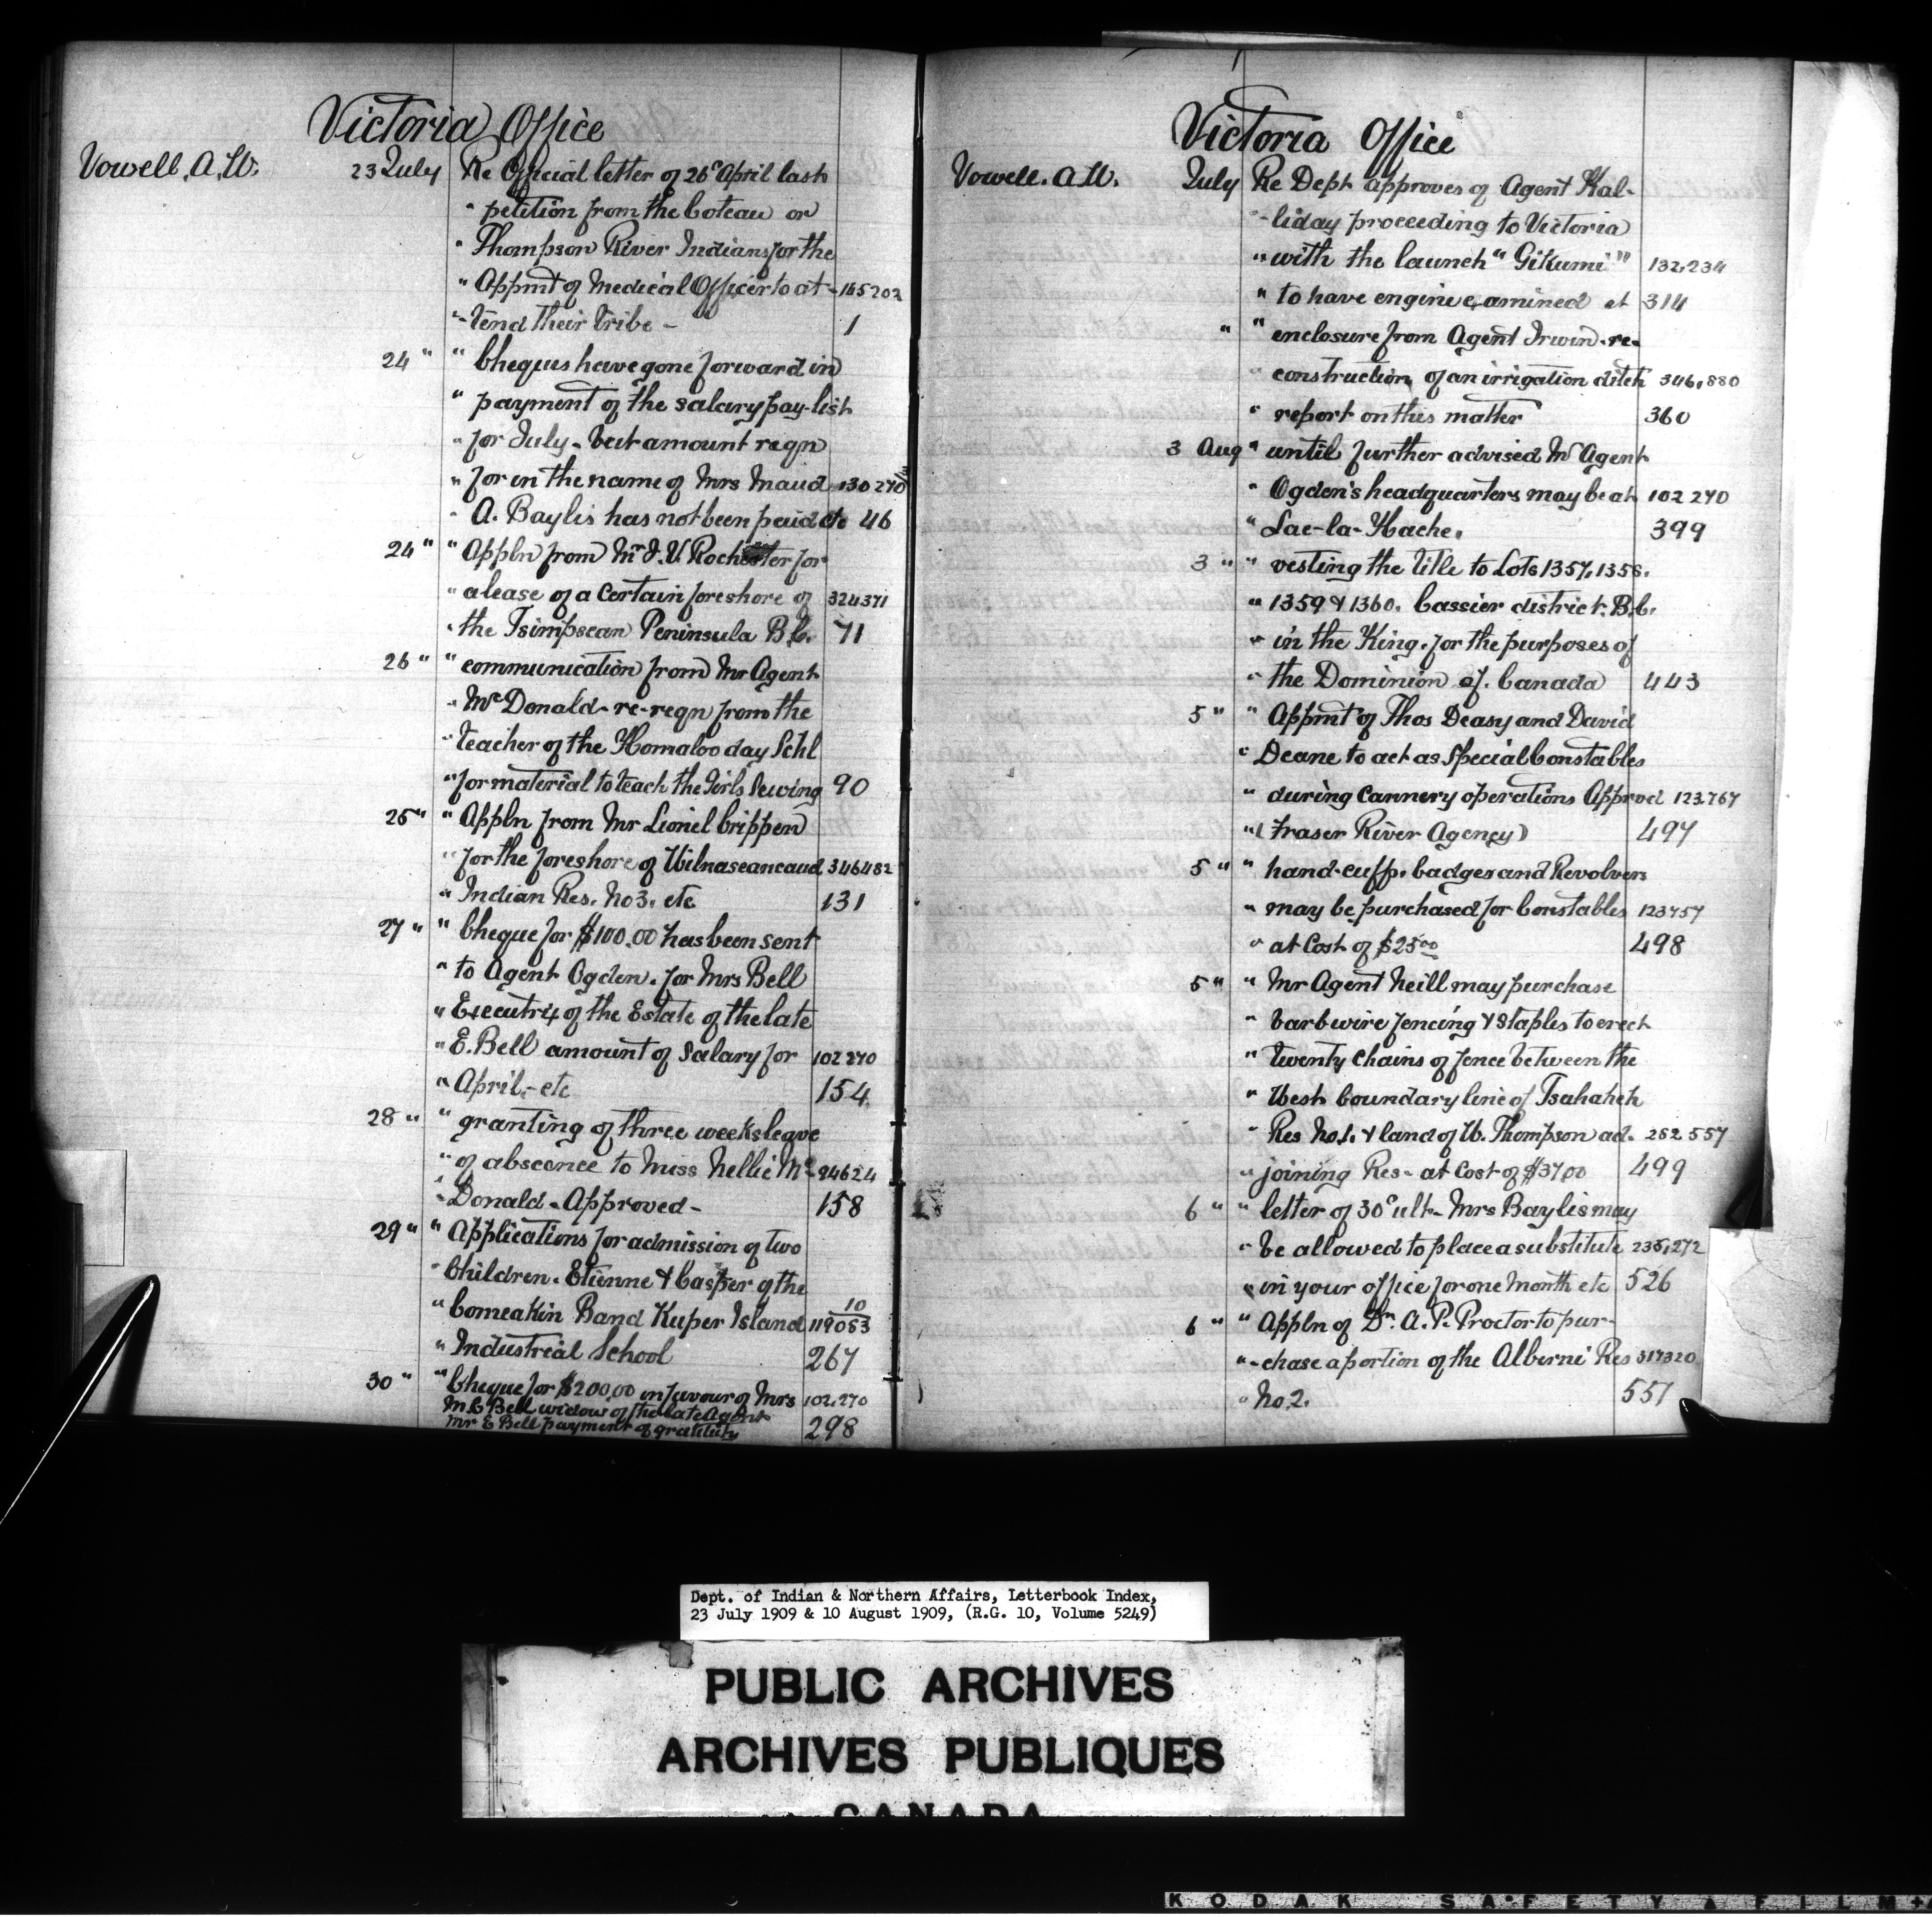 Victoria Office
Vowell. A. W. 23 July Re Official letter of 26th April last
" petition from the Coteau or
" Thompson River Indians for the
" Appmt of Medical Officer to at- 165202
"-tend their tribe - 1
24 " " Cheques have gone forward in
" payment of the salary pay-list
" for July - but amount reqn
" for in the name of Mrs Maud 130270
" A. Baylis has not been paid etc 46
24 " " Appln from Mr J. U. Rochester for
" a lease of a certain foreshore of 324371
" the Tsimpsean Peninsula B.C. 71
26 " " communication from Mr Agent
" McDonald - re-reqn from the
" teacher of the Homalco day Schl
" for material to teach the Girls Sewing 90
26 " " Appln from Mr Lionel Crippen
" for the foreshore of Wilnaseancaud 346482
" Indian Res. No 3. etc 131
27 " " Cheque for $100.00 has been sent
" to Agent Ogden. for Mrs Bell
" Executrix of the Estate of the late
" E. Bell amount of Salary for 102270
" April - etc 154
28 " " granting of three weeks leave
" of abscence to Miss Nellie Mc- 94624
" Donald - Approved - 158
29 " " Applications for admission of two
" Children. Etienne & Casper of the
" Comeakin Band Kuper Island 119083 10
" Industrial School 267
30 " " Cheque for $200.00 in favour of Mrs 102.270
M. E Bell widow of the late Agent
Mr E Bell payment of gratuity 298
Victoria Office
Vowell. A. W. July Re Dept approves of Agent Hal-
"-liday proceeding to Victoria
" with the launch "Gikumi" 132,234
" to have engine examined et 314
" " enclosure from Agent Irwin - re-
" construction of an irrigation ditch 346,880
" report on this matter 360
3 Aug " until further advised Mr Agent
" Ogden's headquarters may be at 102 270
" Lac-la-Hache. 399
3 " " vesting the title to Lots 1357, 1358.
" 1359 & 1360. Cassier district. B.C.
" in the King. for the purposes of
" the Dominion of. Canada 443
5 " " Appmt of Thos Deasy and David
" Deane to act as Special Constables
" during Cannery operations Approd 123.767
" (Fraser River Agency) 497
5 " " hand-cuffs. badges and Revolvers
" may be purchased for Constables 123757
" at Cost of $25.00 498
5 " " Mr Agent Neill may purchase
" barb wire fencing & Staples to erect
" twenty chains of fence between the
" West boundary line of Tsahaheh
" Res No.1. & land of W. Thompson ad- 252.557
" joining Res - at Cost of $37.00 499
6 " " letter of 30th ult - Mrs Baylis may
" be allowed to place a substitute 235,272
" in your office for one Month etc 526
6 " " Appln of Dr. A. P. Proctor to pur-
"-chase a portion of the Alberni Res 317320
" No 2. 551
Dept. of Indian & Northern Affairs, Letterbook Index,
23 July 1909 & 10 August 1909, (R.G. 10, Volume 5249)
PUBLIC ARCHIVES
ARCHIVES PUBLIQUES
CANADA
KODAK SAFETY FILM